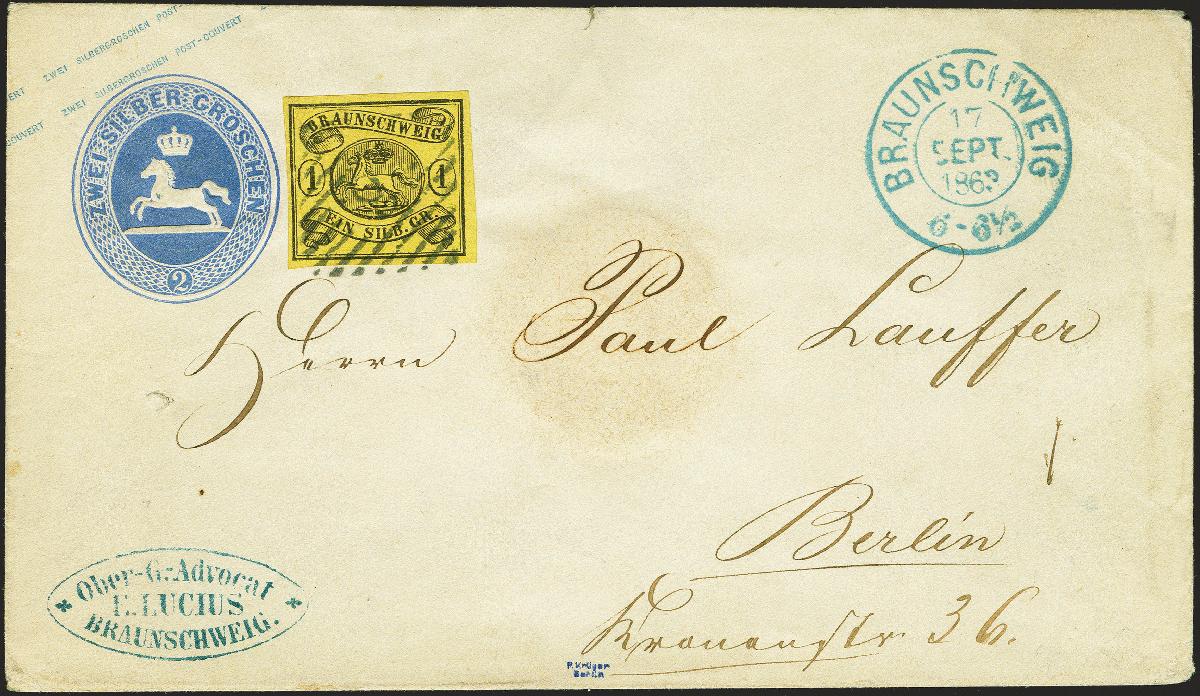 ZWEI SILBERGROSCHEN POST-
ERT ZWEI SILBERGROSCHEN POST-COUVERT
COUVERT
ZWEI SILBER GROSCHEN
2
BRAUNSCHWEIG
1 1
EIN SILB. GR.
BRAUNSCHWEIG
17
SEPT.
186
6-6½
Herrn Paul Lauffer
Berlin
Kronenstr. 36.
Ober-G:-Advocat
E. LUCIUS
BRAUNSCHWEIG.
P. Krüger
Berlin